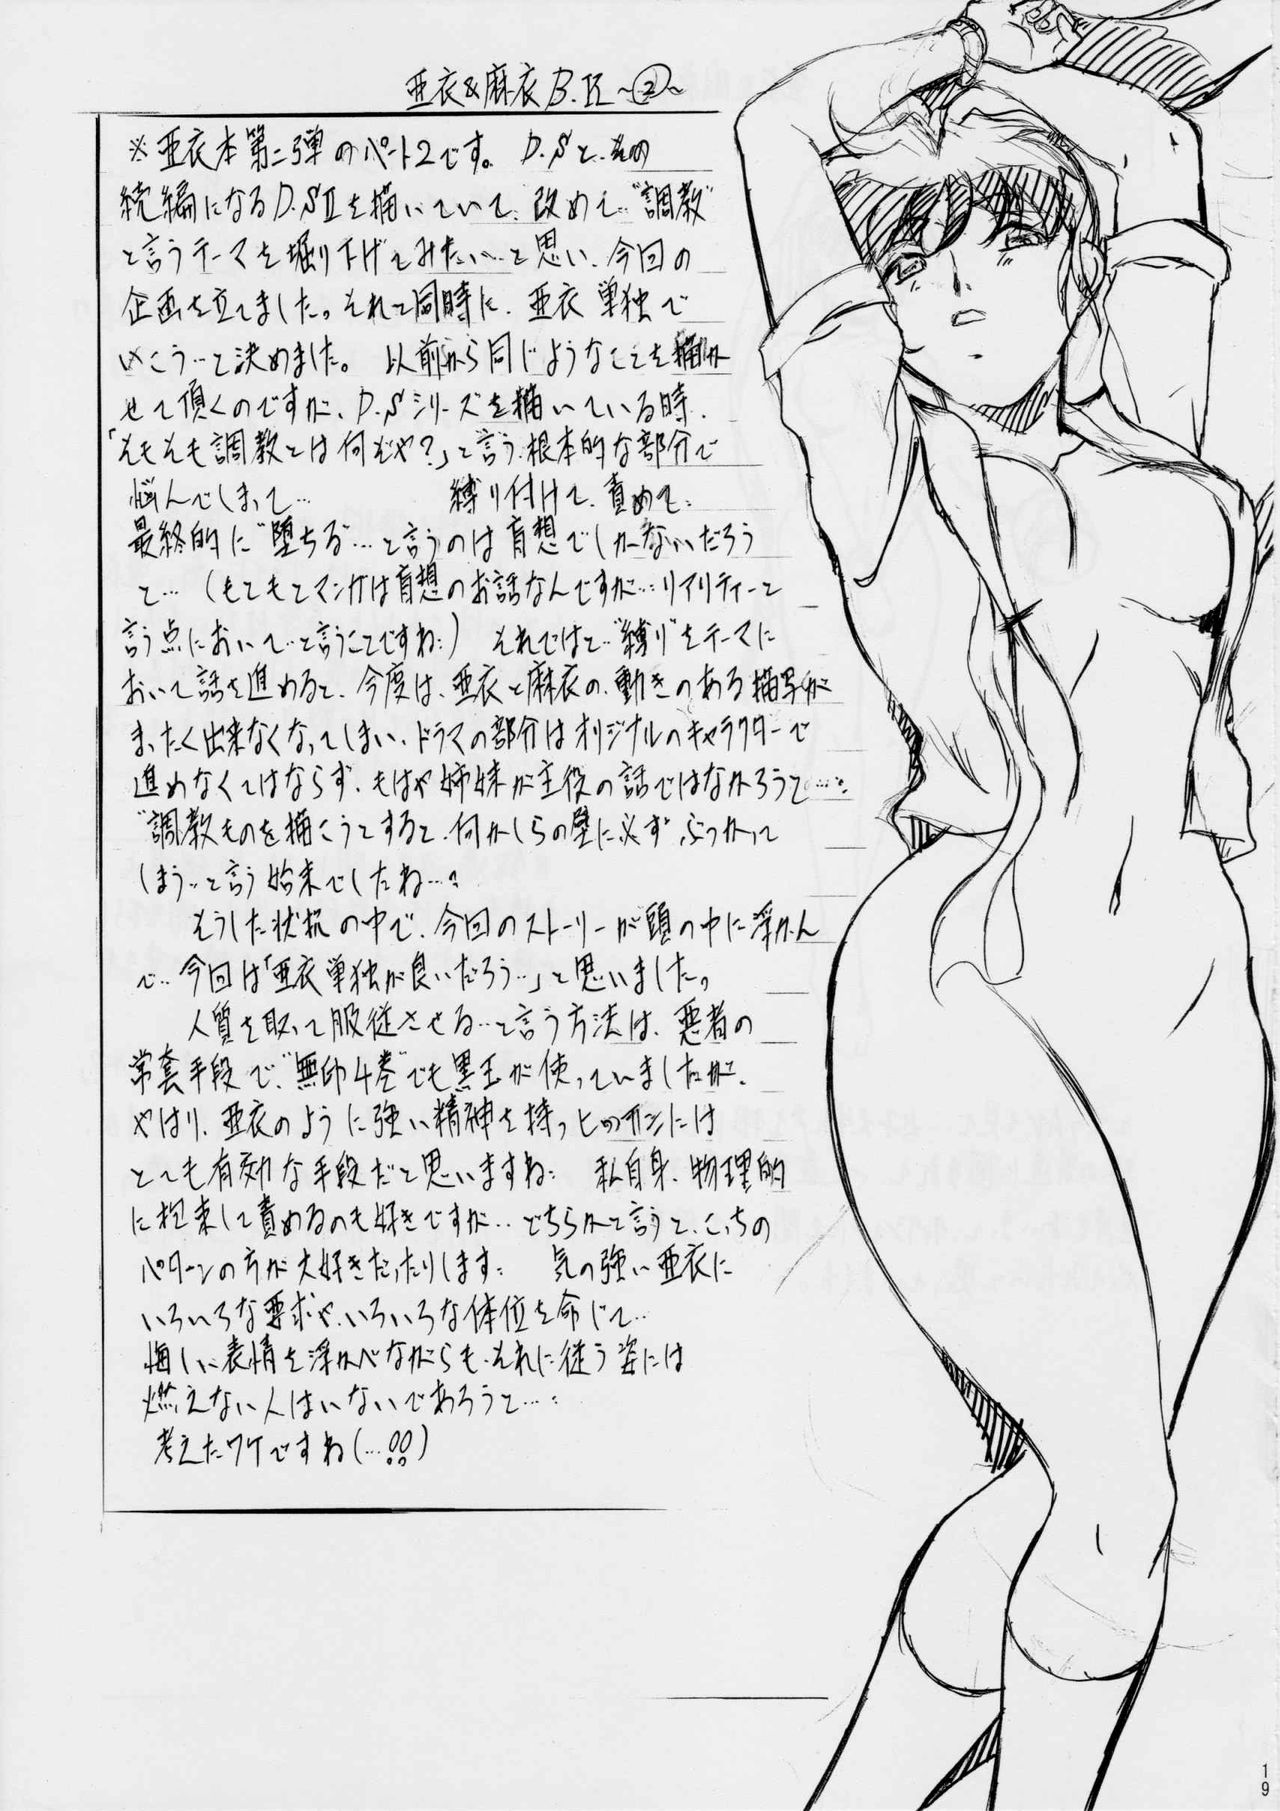 亜衣&麻衣 B.R ~②~
※亜衣本第二弾のパート2です。 D.Sと、その
続編になるD.SⅡを描いていて、改めて“調教”
と言うテーマを掘り下げてみたい…と思い、今回の
企画を立てました。それと同時に、亜衣単独で
いこう…と決めました。 以前から同じようなことを描か
せて頂くのですが、D.Sシリーズを描いている時、
「そもそも調教とは何ぞや?」と言う、根本的な部分で
悩んでしまって… 縛り付けて、責めて…
最終的に“堕ちる”…と言うのは盲想でしかないだろう
と… (もともとマンガは盲想のお話なんですが…リアリティーと
言う点において…と言うことですね…) それではと…“縛り”をテーマに
おいて話を進めると、今度は、亜衣と麻衣の、動きのある描写が
まったく出来なくなってしまい、ドラマの部分はオリジナルのキャラクターで
進めなくてはならず、もはや姉妹が主役の話ではなかろうと…。
“調教ものを描こうとすると、何かしらの壁に必ずぶつかって
しまう…と言う始末でしたね…。
そうした状況の中で、今回のストーリーが頭の中に浮かん
で…今回は「亜衣単独が良いだろう…」と思いました。
人質を取って服従させる…と言う方法は、悪者の
常套手段で、“無印4巻”でも黒玉が使っていましたが、
やはり、亜衣のように強い精神を持つヒロインには
とても有効な手段だと思いますね… 私自身、物理的
に拘束して責めるのも好きですが…どちらかと言うと、こっちの
パターンの方が大好きだったりします… 気の強い亜衣に
いろいろな要求や、いろいろな体位を命じて…
悔しい表情を浮かべながらも、それに従う姿には
燃えない人はいないであろうと…
考えたワケですね(…!!)
19